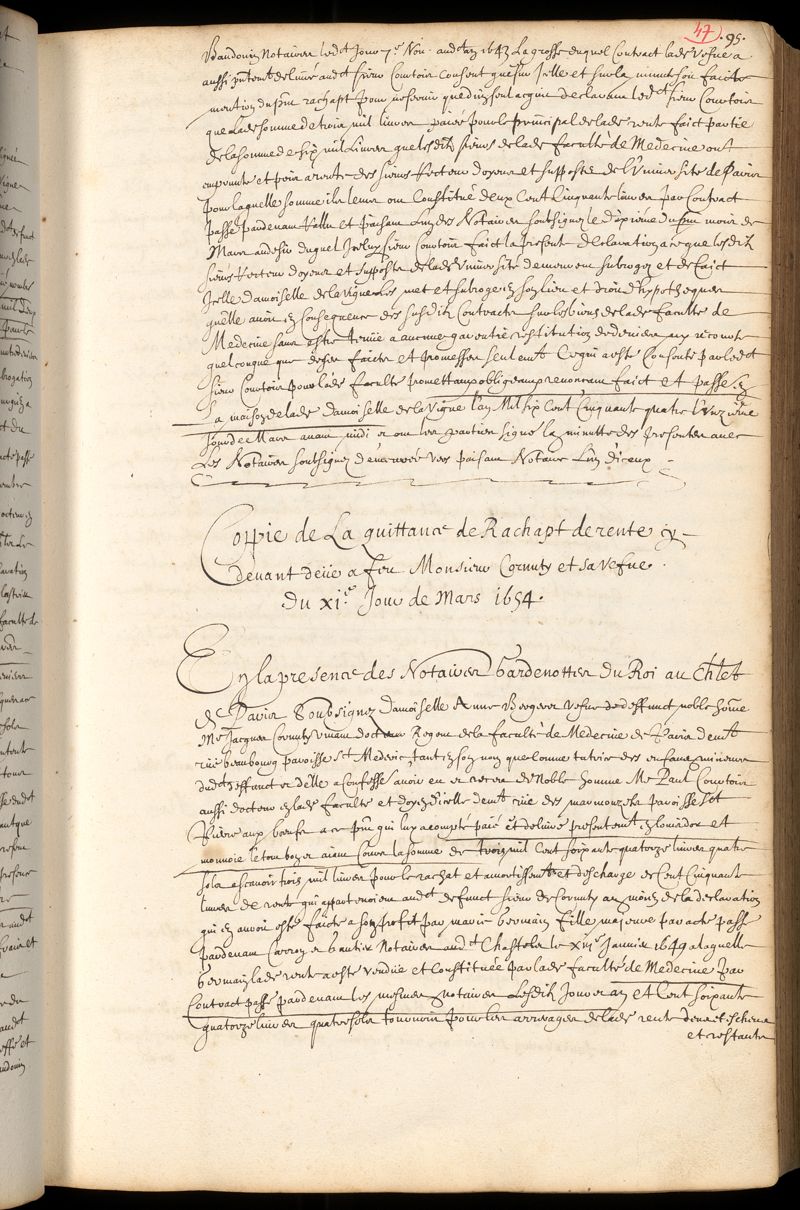 47 . 95.
Baudouin Notaires led.t Jour 7.e Nov. aud.t an 1643 La grosse duquel Contract lade vefue a
aussi pntem.t deliuré aud.t sieur Comtoir consent que sur Jcelle et sur la minutte soit faicte
mention du pnt rachapt pour ne seruir que d'un seul acquit declarant led.t sieur Comtoir
que Lade somme de trois mil liures paiée pour le principal de lade rente faict partie
de la somme de six mil Liures que lesdits sieurs de lade faculté de Medecine ont
emprunté et pris a rente des sieurs Recteur doyens et supposts de l'Vniuersité de Paris
pour laquelle somme ils leur ont Constitué deux Cent Cinquante liures par Contract
passé pardeuant et Paisant L'un des Notaires soubsignez le dixieme du pnt mois de
Mars au desir duquel Jceluy sieur Comtoir faict la presente declaration a ce que lesdits
sieurs Recteur doyens et supposts de lade Vniuersité demeurent subrogez et de faict
Jcelle damoiselle de la Vigne Les met et subroge en son lieu et droict d'hypotheque
qu'elle auoit en Consequence des susdits Contracts sur les biens de lade faculté de
Medecine sans estre tenüe a aucune garentie restitution de deniers ny recours
quelconque que de ses faicts et promesses seulem.t Ce qui a esté Consenti par led.t
sieur Comtoir pour lade faculté promettant obligeant renonceant faict et passé en
La maison de lade damoiselle de la Vigne l'an Mil six Cent Cinquante quatre l'Vnzieme
Jour de Mars auant midi et ont les parties signé la minutte des presentes auec
Les Notaires soubsignez demeurée vers Paisant Notaire L'un d'iceux
Coppie de La quittance de Rachapt de rente cy
deuant deüe a feu Monsieur Cornuty et sa vefue.
Du xi.e Jour de Mars 1654.
En la presence des Notaires Gardenottes Du Roi au Chlet
de Paris Soubsignez Damoiselle Anne Bergerer vefue de deffunct noble home
Me Jacques Cornuty viuant docteur Regent de la faculté de Medecine de Paris dem.t
rüe beaubourg paroisse St Mederic tant en son nom que comme tutrice des enfans mineurs
dud.t deffunct et d'elle a Confessé auoir eu et receu de Noble homme Me Paul Courtoir
aussi docteur en lade faculté et doyen d'icelle dem.t rüe des marmouzets paroisse St
Pierre aux boeufs a ce pnt qui luy a compté paié et deliuré presentem.t en louisdor et
monnoie le tout bon et aiant Cours la somme de trois mil Cent soixante quatorze liures quatre
sols a scauoir trois mil liures pour le rachat et amortissem.t et descharge de Cent Cinquante
liures de rente qui appartenoient aud.t defunct sieur de Cornuty au moien de la declaration
qui en auoit esté faicte a son profit par marie Germain fille majeure par acte passé
pardeuant Carron et Gaultier Notaires aud.t Chastelet le xiii.e Januier 1649 a laquelle
Germain lade rente a esté vendüe et Constituée par lade faculté de Medecine par
Contract passé pardeuant les mesmes Notaires Lesdits Jour et an et Cent soixante
quatorze liures quatre sols tournois pour les arrerages de lade rente deus et escheus
et restants